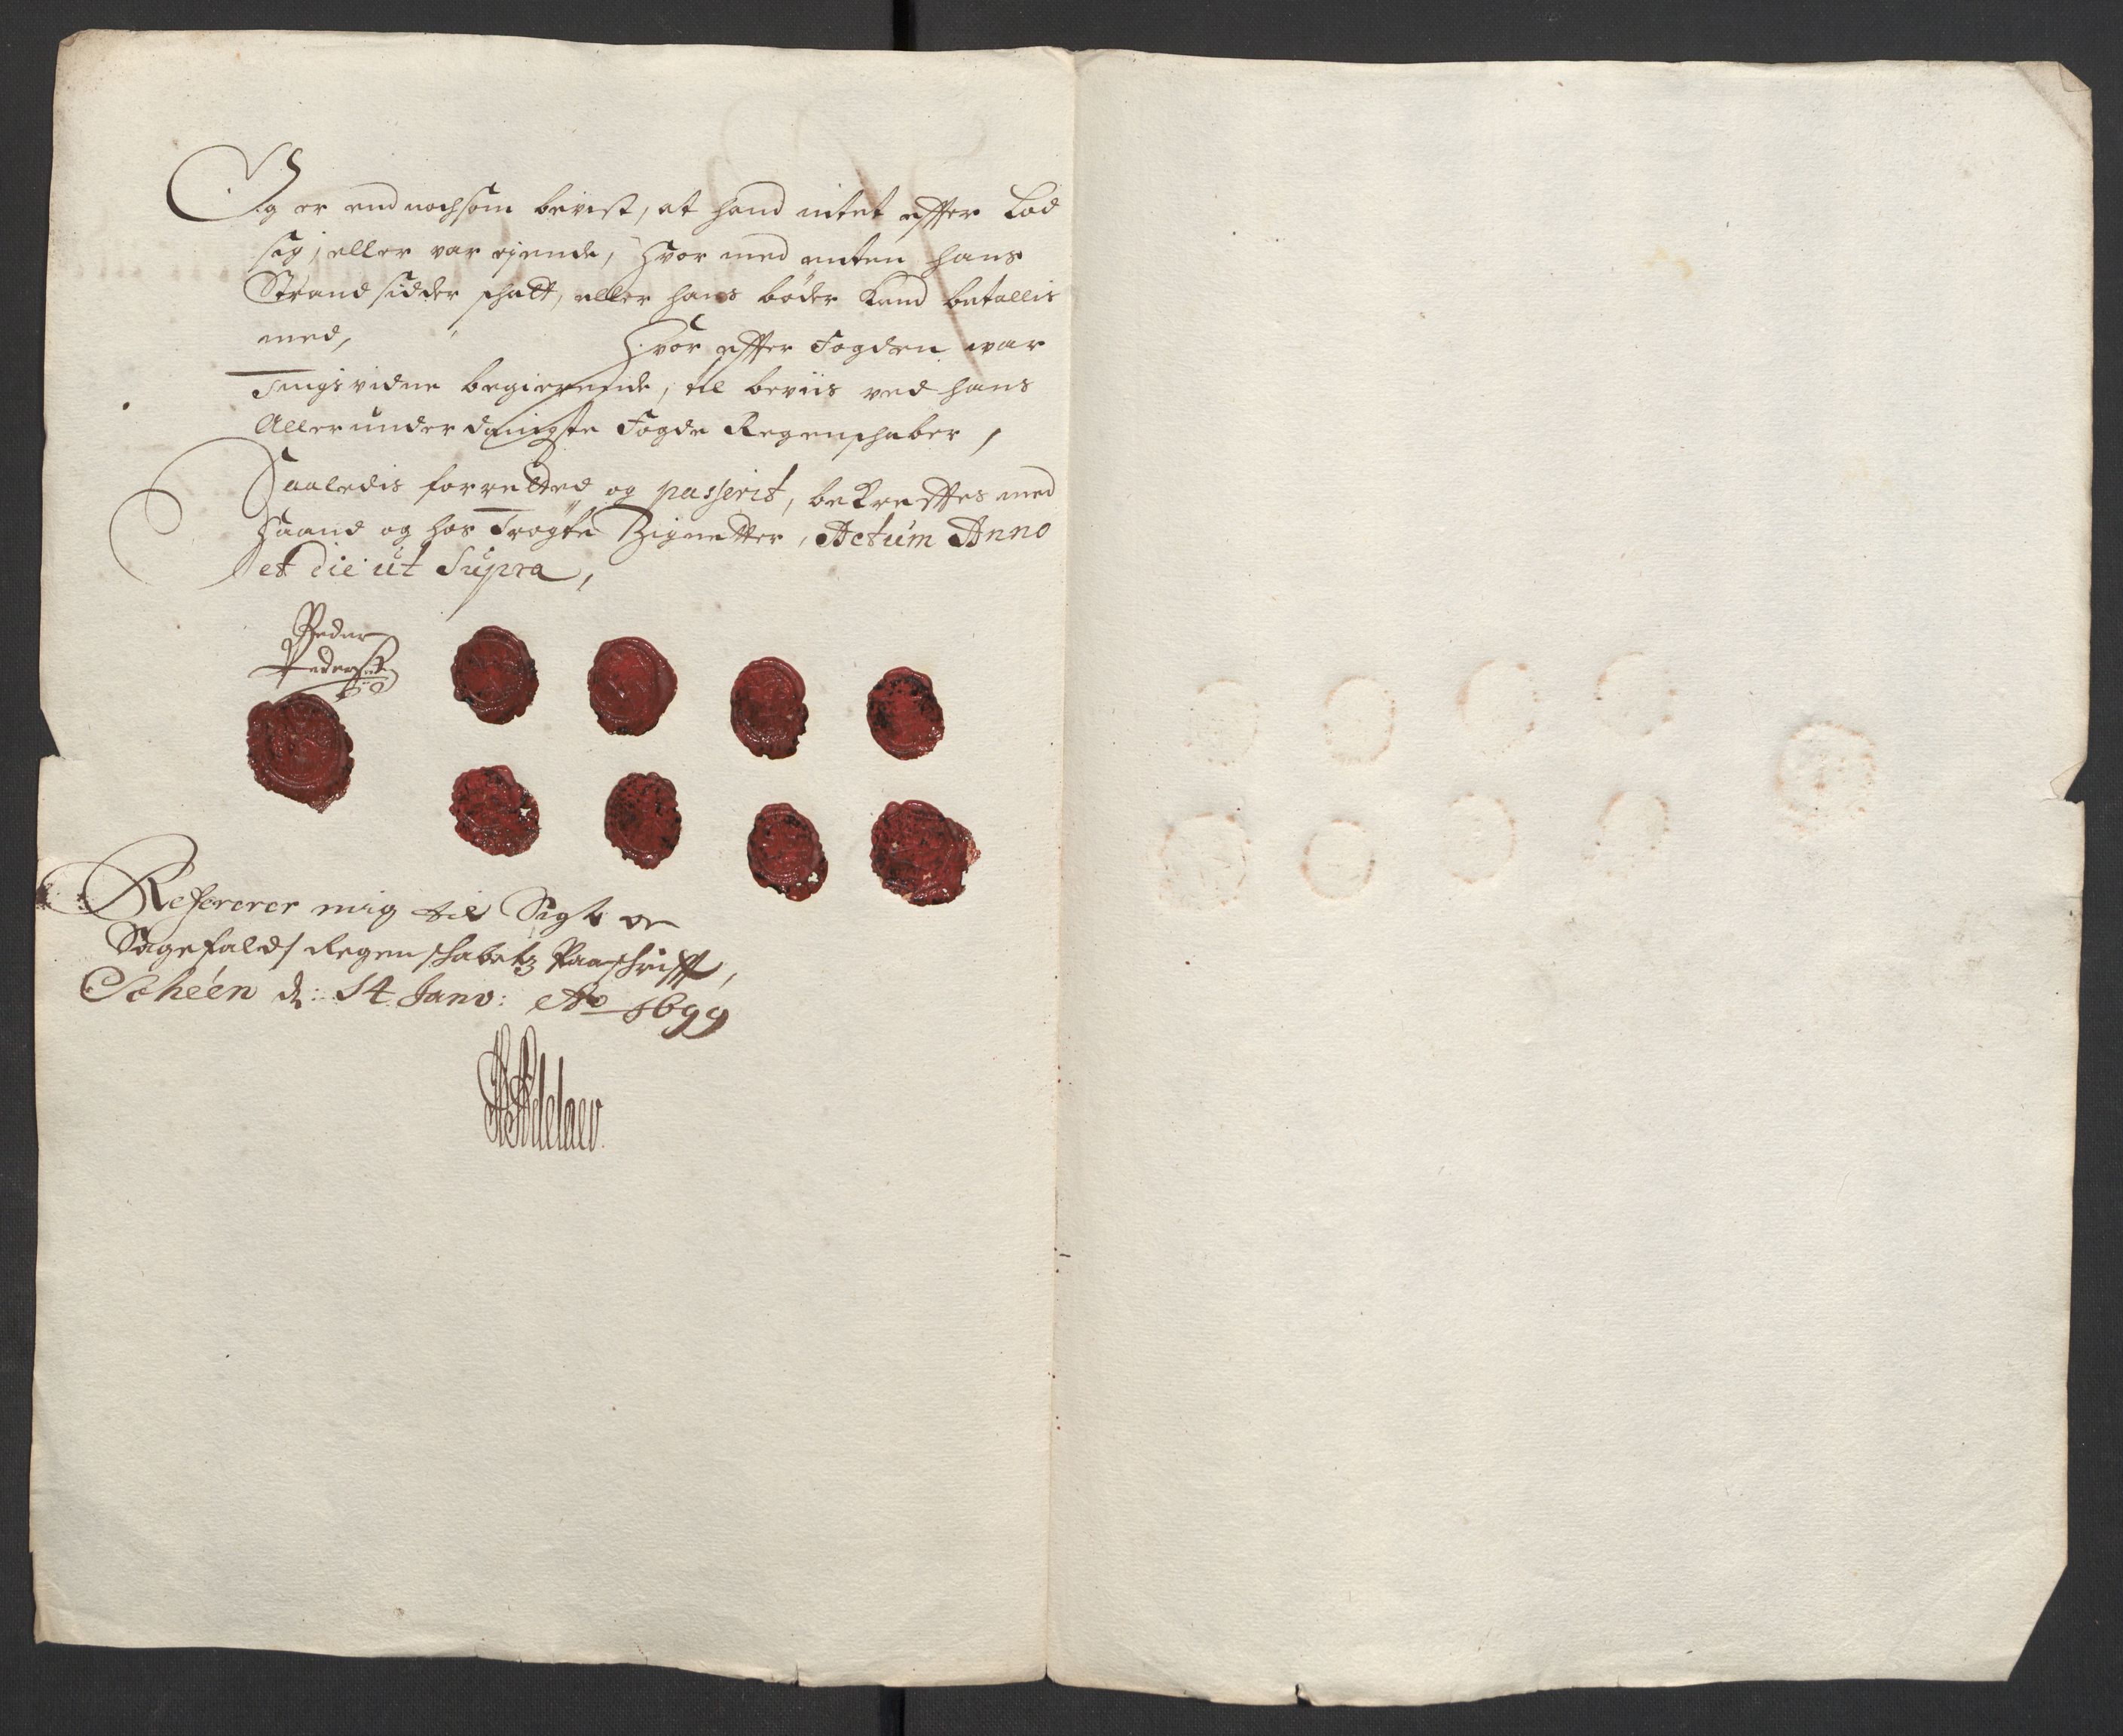 Og er end nochsom bevist, at hand intet effter Lod
sig, eller var ejende, Hvor med enten hans
Strandsidder schatt, eller hans bøder kand betallis
med, Hvor effter Fogden war
Tingsvidne begierende, til beviis ved hans
Allerunderdanigste Fogde Regenschaber,
Saaledis forretted og passerit, bekrefftes med
Haand og hos Trøgte Zignetter, Actum Anno
et die ut Supra,
Peder
Pederss
Refererer mig til Sigt og
Sagefalds Regenschabetz Paaschrifft,
Scheen d: 14 Janv: Ao 1699
Adelaer